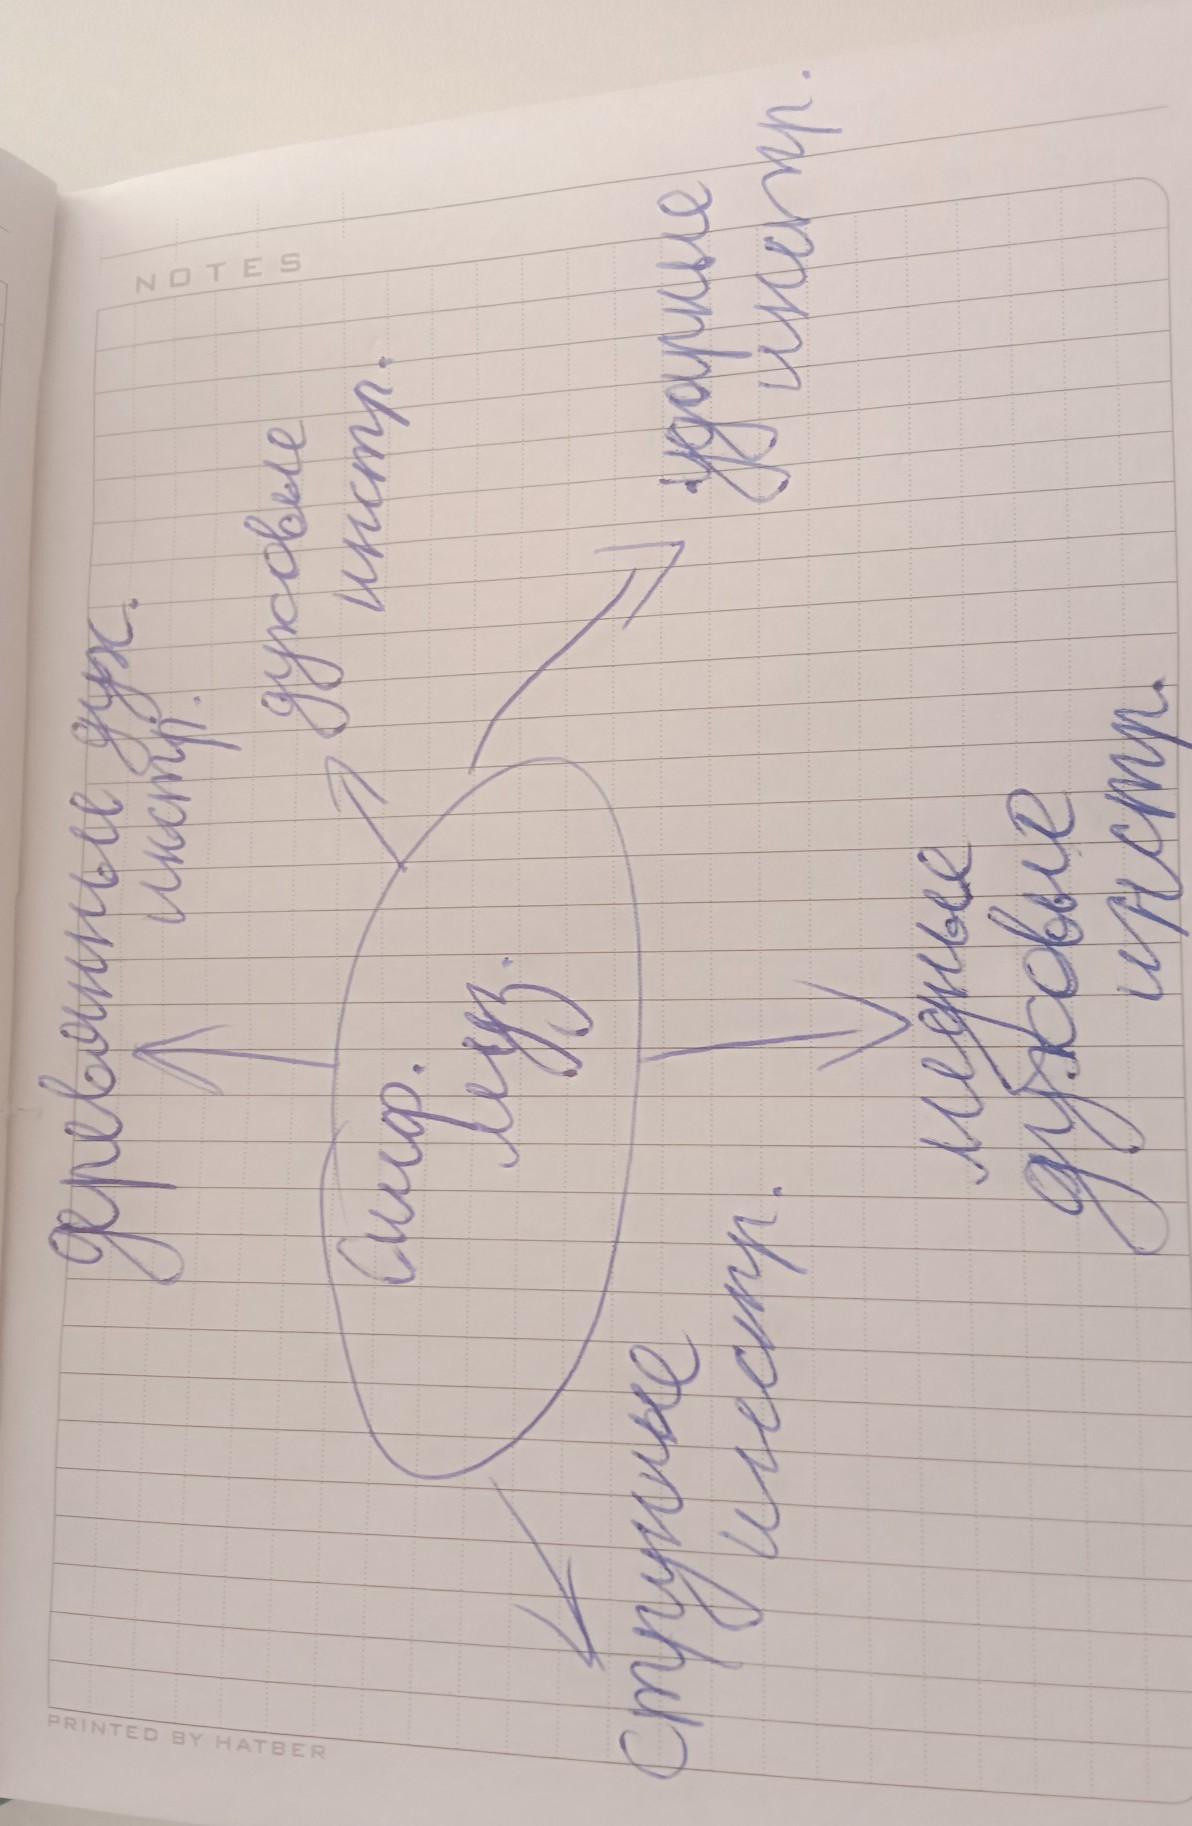 NOTES
деревянные дух.
инстр.
духовые
инстр.
Симф.
муз.
ударные
инстр.
струнные
инстр.
медные
духовые
инстр.
PRINTED BY HATBER